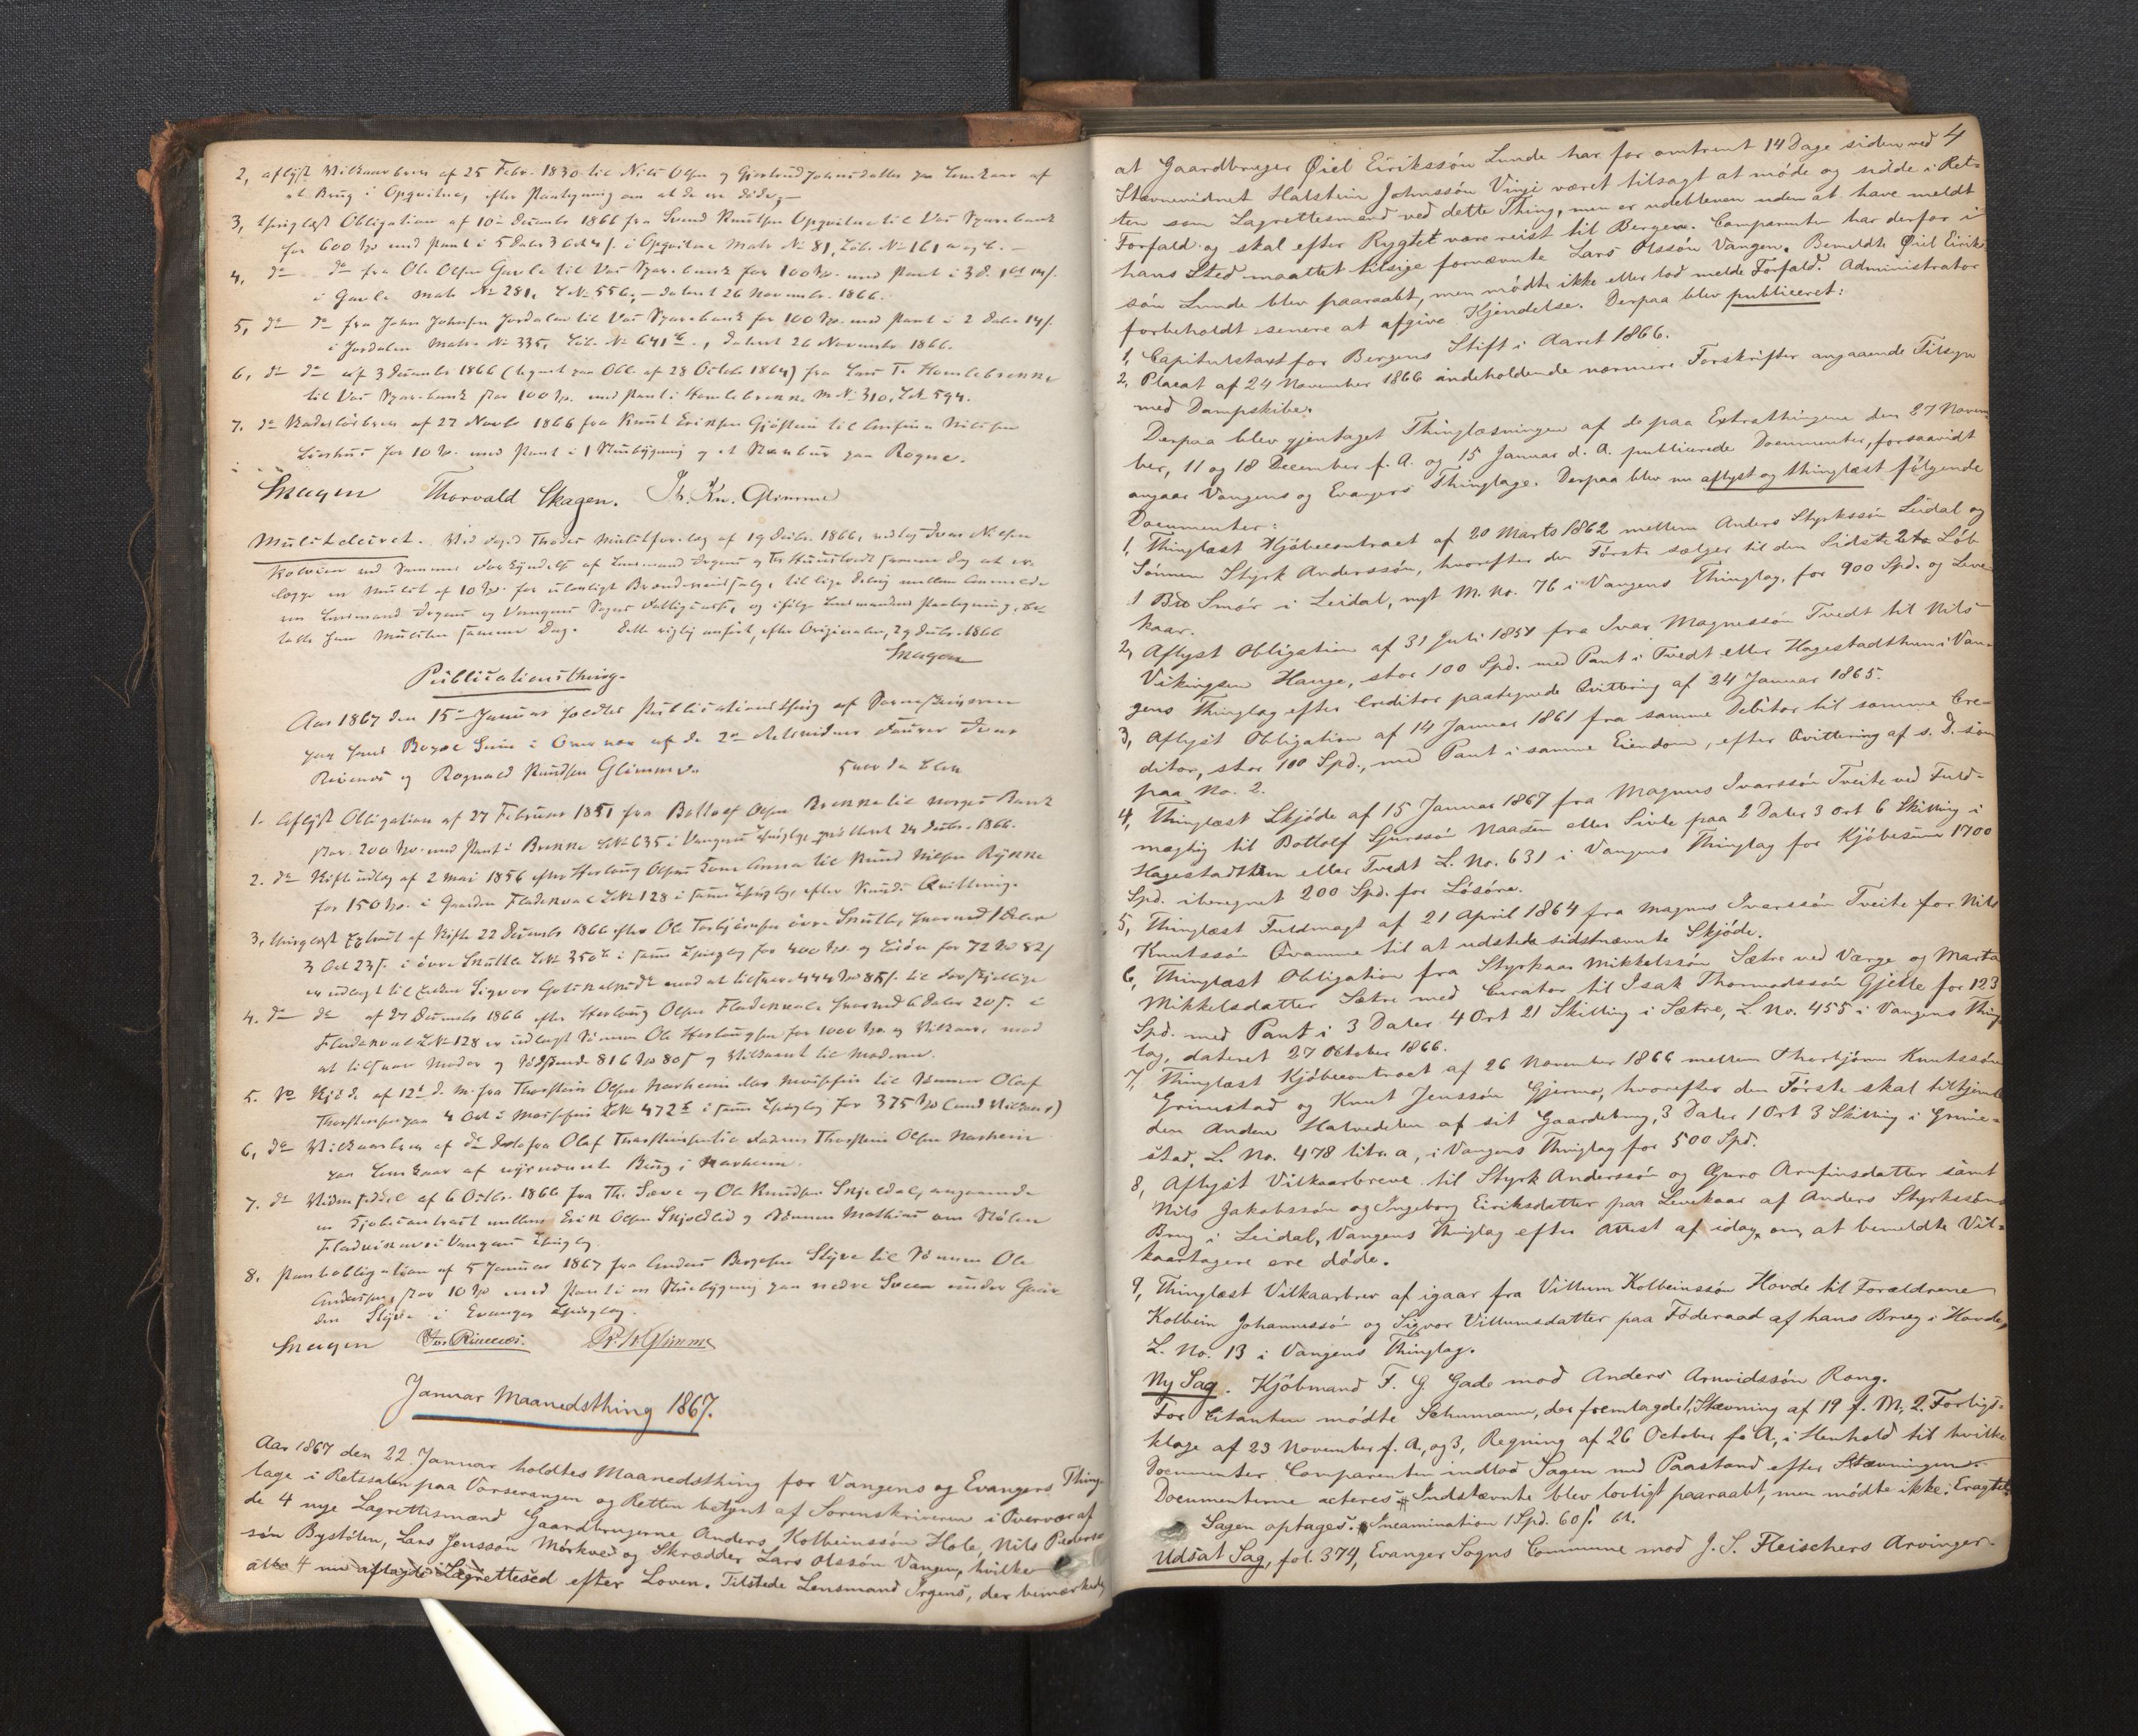 2, aflyst Vilkaarsbrev af 25 Febr. 1830 til Nils Olsen og Gjertrud Johnsdatter paa Levekaar af
et Brug i Opqvitne, efter Paategning om at de ere døde,—
3, thinglæst Obligation af 10de Decembr 1866 fra Svend Knutsen Opqvitne til Vos Sparebank
for 600 Spd med Pant i 5 Daler 3 Ort 4 s. i Opqvitne Matr No 81, Løb. No 161 a og b. —
4, do do fra Ole Olsen Gavle til Vos Sparebank for 100 Spd. med Pant i 3 d. 1 ort 14 s.
i Gavle Matr No 281, L No 556, — dateret 26 Novembr. 1866.
5, do do fra John Johnsen Jordalen til Vos Sparebank for 100 Spd. med Pant i 2 Daler 14 s.
i Jordalen Matr. No 335, Løb. No 641 b., dateret 26 Novembr 1866.
6, do do af 3 Decembr 1866 (tegnet paa Obl. af 28 Octobr 1864) fra Lars T. Hemlebrenne
til Vos Sparebank stor 100 Spd. med Pant i Hemlebrenne M No 310, L No 594.
7. do af 27 Novbr 1866 fra Knut Eriksen Gjøstein til Nilssen
for 10 Spd. med Pant i 1 Stuebygning og et Stabbur paa Rogne.
Thorvald Skagen. Th. Kn. Glimme
Mulctdecret. Ved Thodes Mulctforelæg af 19 Decbr. 1866, vedtog Ivar Nilsen
ved Sammes Forkyndelse af Lensmand Irgens og Th. samme Dag at er-
lægge en Mulct af 10 Spd. for ulovligt Brændeviinsalg, til lige Deling mellem Anmelde-
ren Lensmand Irgens og Vangens Sogns Fattigcasse, og ifølge Lensmandens Paategning, be-
talte han Mulcten samme Dag. Dette rigtig anført, efter Originalen, 29 Decbr. 1866
Publicationsthing.
Aar 1867 den 15de Januar holdtes Publicationsthing af Sorenskriveren
paa hans i Overvær af de 2de Retsvidner Ivar
Rivenes og Rognald Knudsen Glimme. hvor da blev
1. Aflyst Obligation af 27 Februar 1851 fra Bottolf Olsen Brenne til Norges Bank
stor 200 Spd. med Pant i Brenne L No 635 i Vangens Thinglag, 24 Decbr. 1866.
2. do Skifteudlæg af 2 Mai 1856 efter Herlaug Olsens Kone Anna til Knud Nilsen Rynne
for 150 Spd. i Gaarden Fladekval L No 128 i samme Thinglag, efter Knuds Qvittering.
3, thinglæst Extract af Skifte 22 Decembr 1866 efter Ole Torbjørnsen øvre hvorved 1 Daler
3 Ort 23 s. i øvre L No 350 b i samme Thinglag for 400 Spd og Løsøre for 72 Spd 82 s
er udlagt til Enken Sigvor mod at tilsvare 444 Spd 85 s. til forskjellige
4. do do af 27 Decembr 1866 efter Herlaug Olsen Fladekval, hvorved 6 Daler 20 s. i
Fladekval L No 128 er udlagt Sønnen Ole Herlaugsen for 1000 Spd og Vilkaar, mod
at tilsvare Moder og Sødskende 816 Spd 80 s og Vilkaaret til Moderen.
5. do Skjøde af 12te d. M. fra Thorstein Olsen Narheim til Sønnen Olaf
Thorsteinsen paa 4 Ort i L No 472 c i samme Thinglag for 375 Spd (med Vilkaar)
6, do Vilkaarsbrev af do Dato fra Olaf Thorsteinsen til Faderen Thorstein Olsen Narheim
paa Levekaar af nysnævnte Brug i Narheim.
7. do Vidnesbyrd af 6 Octbr. 1866 fra Th. Sæve og Ole Knudsen Skjeldal, angaaende
en Kjøbecontract mellem Erik Olsen Skjoldlid og Sønnen Mathias om Stølen
i Vangens Thinglag.
8. Pantobligation af 5 Januar 1867 fra Anders Bergesen Styve til Sønnen Ole
Andersen, stor 10 Spd med Pant i en Stuebygning paa nedre under Gaar-
den Styve i Evanger Thinglag.
Ivr Rivenes. R. K. Glimme
Januar Maanedsthing 1867.
Aar 1867 den 22. Januar holdtes Maanedsthing for Vangens og Evangers Thing-
lage i Retssalen paa Vossevangen og Retten betjent af Sorenskriveren i Overvær af
de 4 nye Lagrettesmænd Gaardbrugerne Anders Kolbeinssøn Hole, Nils Peders-
søn Bystølen, Lars Jenssøn Mørkve og Skrædder Lars Olssøn Vangen, hvilke
alle 4 nu aflagde Lagrettesed efter Loven. Tilstede Lensmand Irgens, der bemærkede,
4
at Gaardbruger Øiel Eirikssøn Lunde har for omtrent 14 Dage siden ved
Stævnevidnet Halstein Johnssøn Vinje været tilsagt at møde og sidde i Ret-
ten som Lagrettesmand ved dette Thing, men er udebleven uden at have meldt
Forfald og skal efter Rygtet være reist til Bergen. Comparenten har derfor i
hans Sted maattet tilsige fornævnte Lars Olssøn Vangen. Bemeldte Øiel Eiriks-
søn Lunde blev paaraabt, men mødte ikke eller lod melde Forfald. Administrator
forbeholdt senere at afgive Kjendelse. Derpaa blev publiceret:
1, Capitulstaxt for Bergens Stift i Aaret 1866.
2, Placat af 24 November 1866 indeholdende nærmere Forskrifter angaaende Tilsyn
med Dampskibe.
Derpaa blev gjentaget Thinglæsningen af de paa Extrathingene den 27 Novem-
ber, 11 og 18 December f. A. og 15 Januar d. A. publicerede Documenter, forsaavidt
angaar Vangens og Evangers Thinglage. Derpaa blev nu aflyst og thinglæst følgende
Documenter:
1, Thinglæst Kjøbecontract af 20 Marts 1862 mellem Anders Styrkssøn Leidal og
Sønnen Styrk Anderssøn, hvorefter den Første sælger til den Sidste 2 Løb
1 Smør i Leidal, nyt M. No. 76 i Vangens Thinglag, for 900 Spd. og Leve-
kaar.
2, Aflyst Obligation af 31 Juli 1857 fra Ivar Magnessøn Tvedt til Nils
Vikingsen Hauge, stor 100 Spd. med Pant i Tvedt eller Hagestadthun i Van-
gens Thinglag efter Creditor paategnede Qvittering af 24 Januar 1865.
3, Aflyst Obligation af 14 Januar 1861 fra samme Debitor til samme Cre-
ditor, stor 100 Spd., med Pant i samme Eiendom, efter Qvittering af s. D. som
paa No. 2.
4, Thinglæst Skjøde af 15 Januar 1867 fra Magnus Ivarssøn Tveite ved Fuld-
mægtig til Bottolf Sjurssøn Naasen eller Sivle paa 2 Daler 3 Ort 6 Skilling i
Hagestadthun eller Tvedt L. No. 631 i Vangens Thinglag for Kjøbesum 1700
Spd. iberegnet 200 Spd. for Løsøre.
5, Thinglæst Fuldmagt af 21 April 1864 fra Magnus Ivarssøn Tveite for Nils
Knutssøn Qvamme til at udstede sidstnævnte Skjøde.
6, Thinglæst Obligation fra Styrkaar Mikkelssøn Sætre ved Værge og Marta
Mikkelsdatter Sætre med Curator til Isak Thormodssøn Gjelle for 123
Spd. med Pant i 3 Daler 4 Ort 21 Skilling i Sætre, L. No. 455 i Vangens Thing-
lag, dateret 27 October 1866.
7, Thinglæst Kjøbecontract af 26 November 1866 mellem Thorbjørn Knutssøn
Grimestad og Knut Jenssøn Gjerme, hvorefter den Første skal tilskjøte
den Anden Halvdelen af sit Gaardebrug, 3 Daler 1 Ort 3 Skilling i Grime-
stad, L. No. 478 litr. a, i Vangens Thinglag for 500 Spd.
8, Aflyst Vilkaarbreve til Styrk Anderssøn og Guro Arnfinsdatter samt
Nils Jakobssøn og Ingeborg Eiriksdatter paa Levekaar af Anders Styrkssøns
Brug i Leidal, Vangens Thinglag efter Attest af idag, om, at bemeldte Vil-
kaartagere ere døde.
9, Thinglæst Vilkaarbrev af igaar fra Villum Kolbeinssøn Hovde til Forældrene
Kolbein Johannessøn og Sigvor Villumsdatter paa Føderaad af hans Brug i Hovde,
L. No. 13 i Vangens Thinglag.
Ny Sag. Kjøbmand F. G. Gade mod Anders Arnvidssøn Rong.
For Citanten mødte Schumann, der fremlagde 1, Stævning af 19 f. M., 2, Forligs-
klage af 23 November f. A., og 3, Regning af 26 October f. A., i Henhold til hvilke
Documenter Comparenten indlod Sagen med Paastand efter Stævningen.
Documenterne acteres. Indstævnte blev lovligt paaraabt, men mødte ikke. Eragtet:
Sagen optages. Incamination 1 Spd. 60 s. bt.
Udsat Sag, fol. 374, Evanger Sogns Commune mod J. S. Fleischers Arvinger.